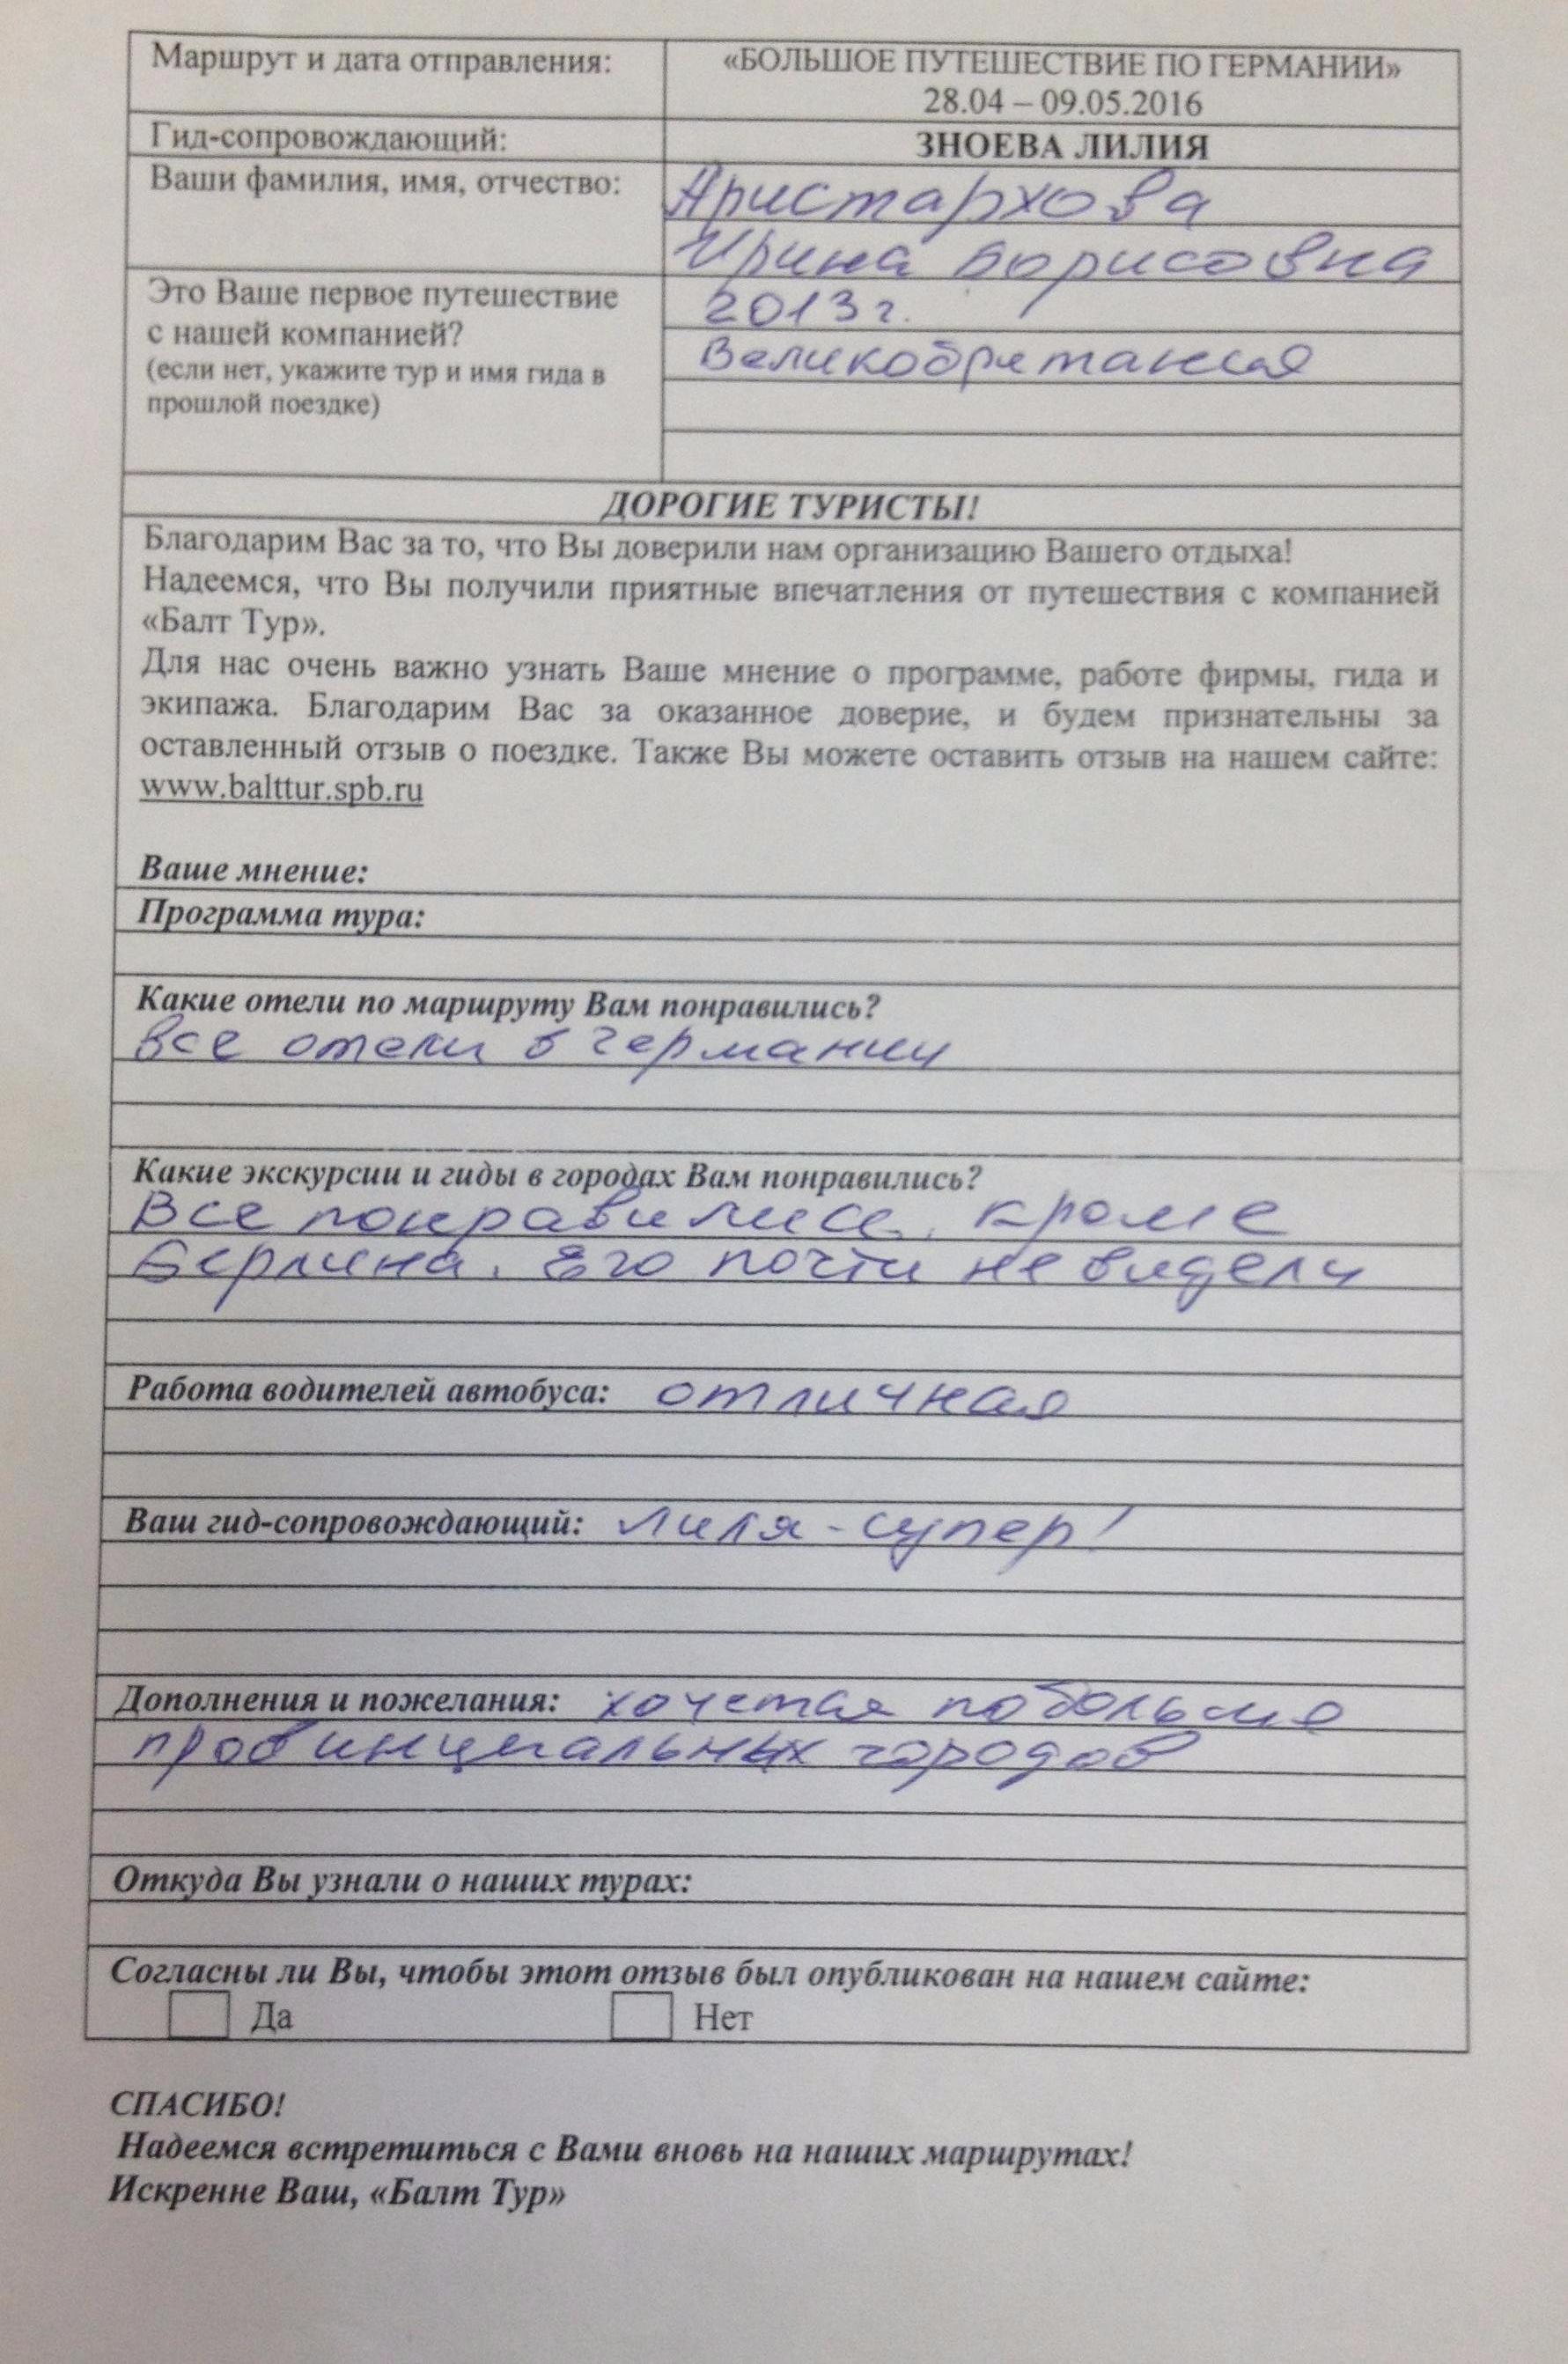 Маршрут и дата отправления:
«БОЛЬШОЕ ПУТЕШЕСТВИЕ ПО ГЕРМАНИИ»
28.04 – 09.05.2016
Гид-сопровождающий:
ЗНОЕВА ЛИЛИЯ
Ваши фамилия, имя, отчество:
Аристархова
Ирина Борисовна
Это Ваше первое путешествие
с нашей компанией?
(если нет, укажите тур и имя гида в
прошлой поездке)
2013 г.
Великобритания
ДОРОГИЕ ТУРИСТЫ!
Благодарим Вас за то, что Вы доверили нам организацию Вашего отдыха!
Надеемся, что Вы получили приятные впечатления от путешествия с компанией
«Балт Тур».
Для нас очень важно узнать Ваше мнение о программе, работе фирмы, гида и
экипажа. Благодарим Вас за оказанное доверие, и будем признательны за
оставленный отзыв о поездке. Также Вы можете оставить отзыв на нашем сайте:
www.balttur.spb.ru
Ваше мнение:
Программа тура:
Какие отели по маршруту Вам понравились?
все отели в Германии
Какие экскурсии и гиды в городах Вам понравились?
Все понравились, кроме
Берлина. Его почти не видели
Работа водителей автобуса: отличная
Ваш гид-сопровождающий: Лиля - супер!
Дополнения и пожелания: хочется побольше
провинциальных городов
Откуда Вы узнали о наших турах:
Согласны ли Вы, чтобы этот отзыв был опубликован на нашем сайте:
Да Нет
СПАСИБО!
Надеемся встретиться с Вами вновь на наших маршрутах!
Искренне Ваш, «Балт Тур»